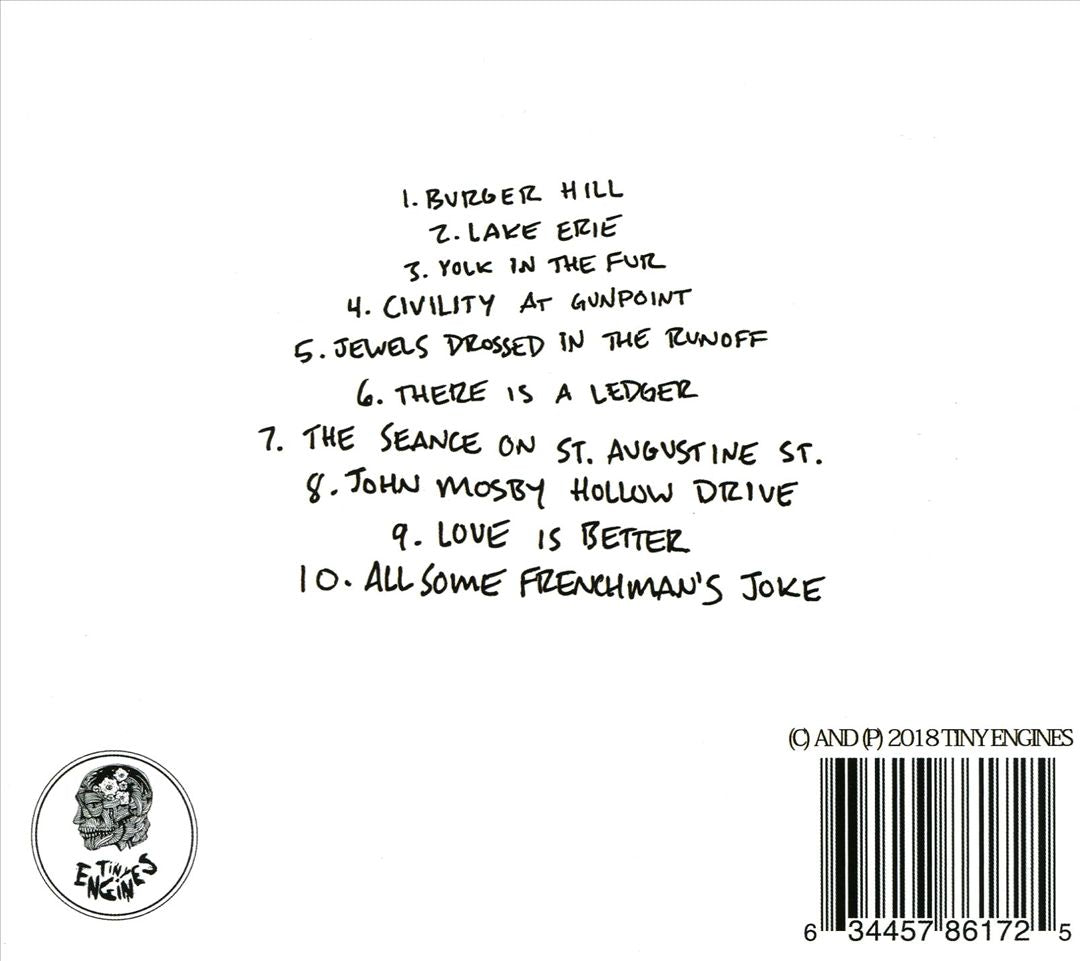 1. BURGER HILL
2. LAKE ERIE
3. YOLK IN THE FUR
4. CIVILITY AT GUNPOINT
5. JEWELS DROSSED IN THE RUNOFF
6. THERE IS A LEDGER
7. THE SEANCE ON ST. AUGUSTINE ST.
8. JOHN MOSBY HOLLOW DRIVE
9. LOVE IS BETTER
10. ALL SOME FRENCHMAN'S JOKE
(C) AND (P) 2018 TINY ENGINES
TINY
ENGINES
6 34457 86172 5